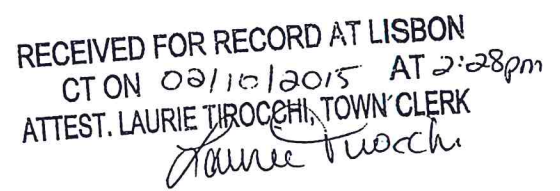 RECEIVED FOR RECORD AT LISBON
CT ON 02/10/2015 AT 2:28pm
ATTEST. LAURIE TIROCCHI, TOWN CLERK
Laurie Tirocchi